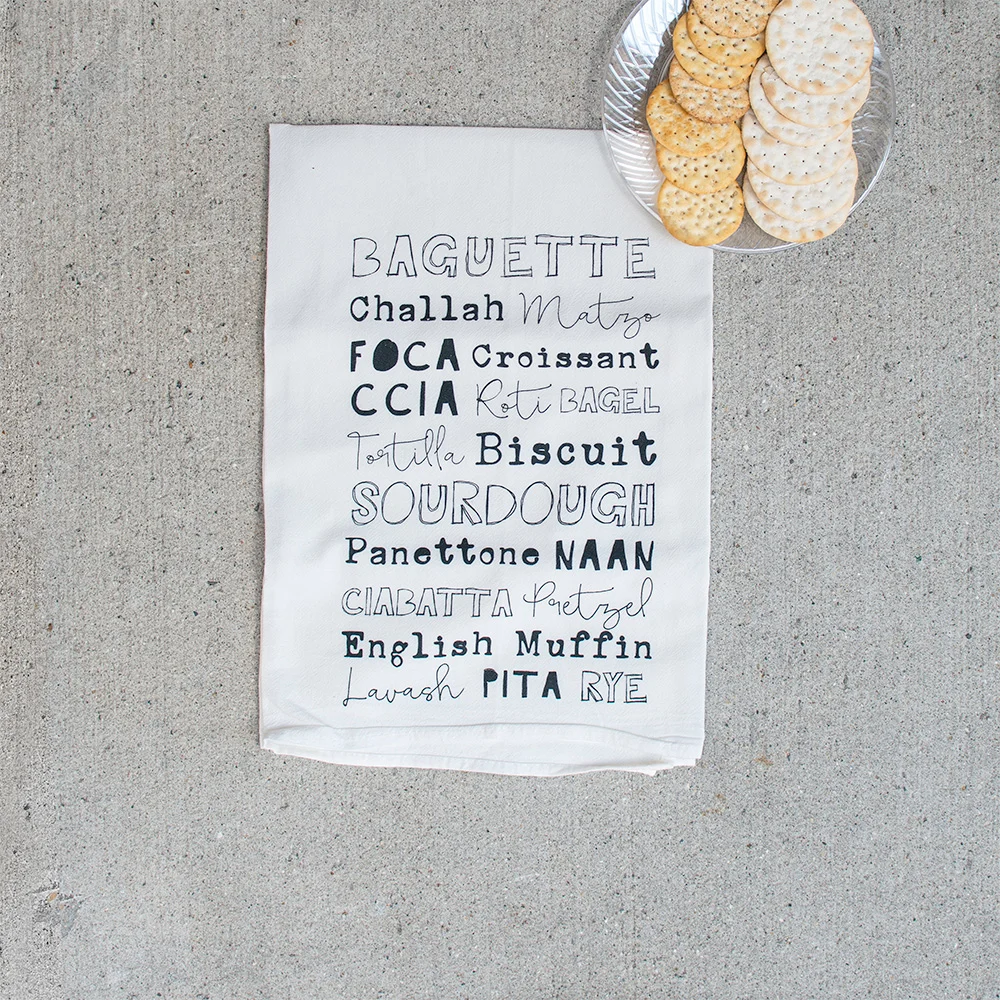 BAGUETTE
Challah Matzo
FOCA Croissant
CCIA Roti BAGEL
Tortilla Biscuit
SOURDOUGH
Panettone NAAN
CIABATTA Pretzel
English Muffin
Lavash PITA RYE